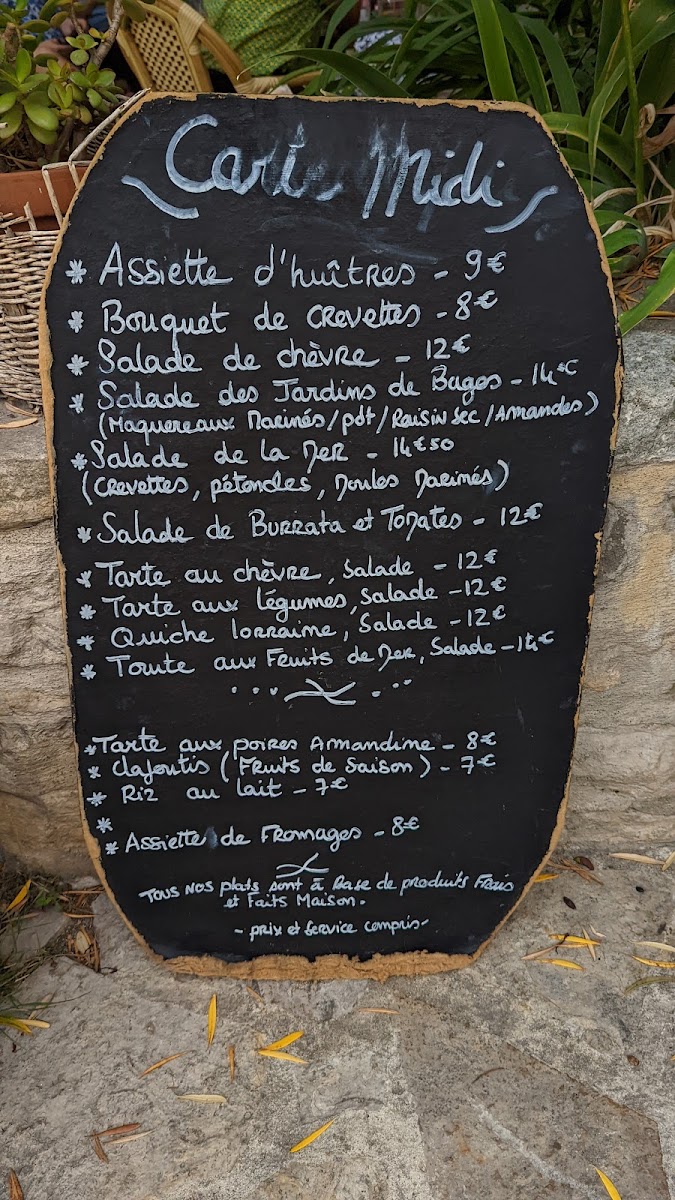 Carte Midi
* Assiette d'huîtres - 9€
* Bouquet de crevettes - 8€
* Salade de chèvre - 12€
* Salade des Jardins de Bages - 14€
(Maquereaux Marinés/pdt/Raisin sec/Amandes)
* Salade de la Mer - 14€50
(crevettes, pétoncles, Moules Marinés)
* Salade de Burrata et Tomates - 12€
* Tarte au chèvre, Salade - 12€
* Tarte aux légumes, Salade - 12€
* Quiche lorraine, Salade - 12€
* Tourte aux Fruits de Mer, Salade - 14€
* Tarte aux poires Amandine - 8€
* Clafoutis (Fruits de Saison) - 7€
* Riz au lait - 7€
*
* Assiette de Fromages - 8€
Tous nos plats sont à Base de produits Frais
et Faits Maison.
- prix et Service compris -